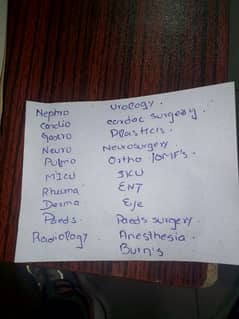 Nephro urology.
Cardio cardac surgery.
Gastro Plasticis.
Neuro Neurosurgery
Pulmo Ortho. IOMF's.
MICU SKU
Rhuma ENT
Derma Eye
Paeds. Paeds surgery.
Radiology. Anesthesia
Burn's